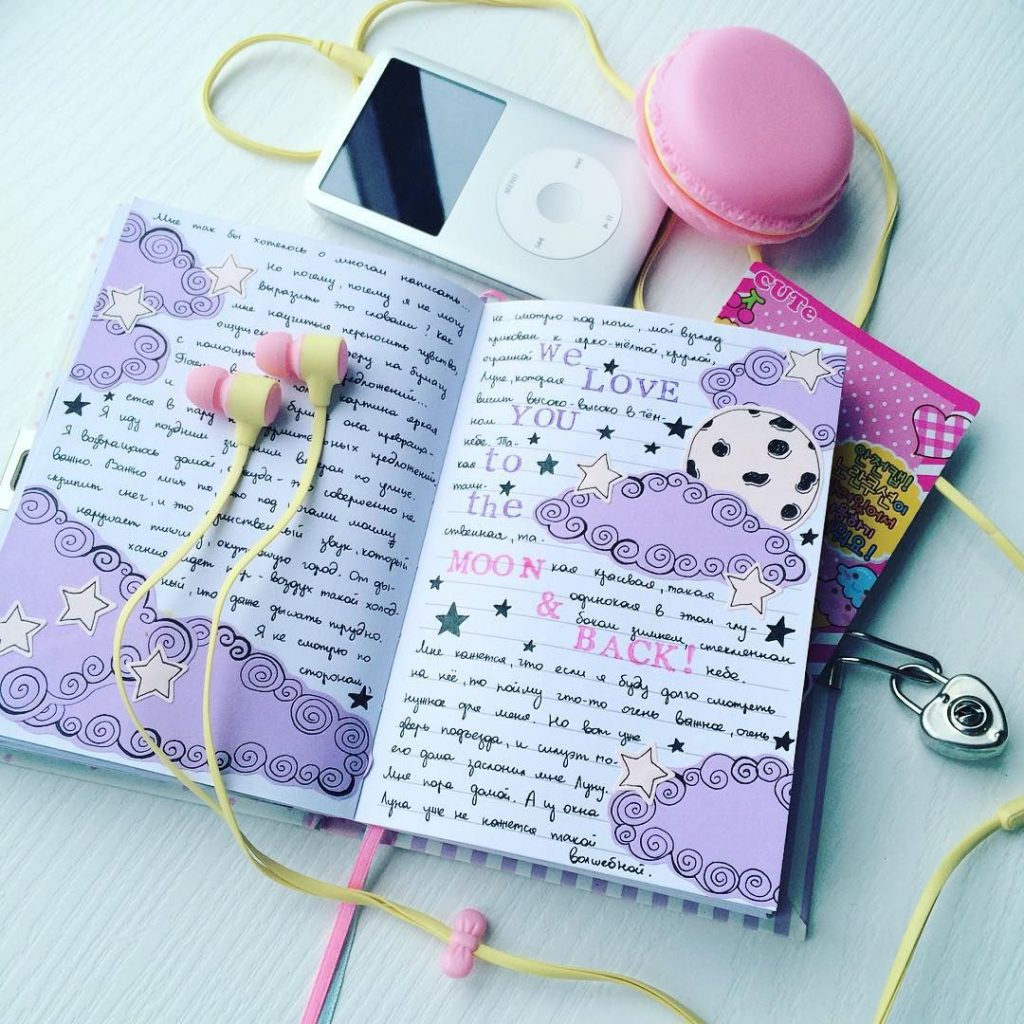 Мне так бы хотелось о многом написать.
Но почему, почему я не могу
выразить это словами? Как
мне научиться переносить чувства,
ощущен на бумагу
с помощью предложений...
картина яркая
и она превраща-
ется в пару предложений
Я иду поздним вечером по улице.
Я возвращаюсь домой, а откуда - это совершенно не
важно. Важно лишь то, что под ногами моими
скрипит снег, и это единственный звук, который
нарушает тишину, окутавшую город. От ды-
хания идет пар - воздух такой холод-
ный, что даже дышать трудно.
Я не смотрю по
сторонам,
не смотрю под ноги, мой взгляд
прикован к ярко-жёлтой, круглой,
огромной
Луне, которая
висит высоко-высоко в тём-
ном
небе. Та-
кая
таин-
ственная, та-
кая красивая, такая
одинокая в этом глу-
боком зимнем, стеклянном
небе.
we
LOVE
YOU
to
the
MOON
&
BACK!
Мне кажется, что если я буду долго смотреть
на неё, то пойму что-то очень важное, очень
нужное для меня. Но вот уже
дверь подъезда, и силуэт мо-
его дома заслонил мне Луну.
Мне пора домой. А из окна
Луна уже не кажется такой
волшебной.
MENU
CUTe